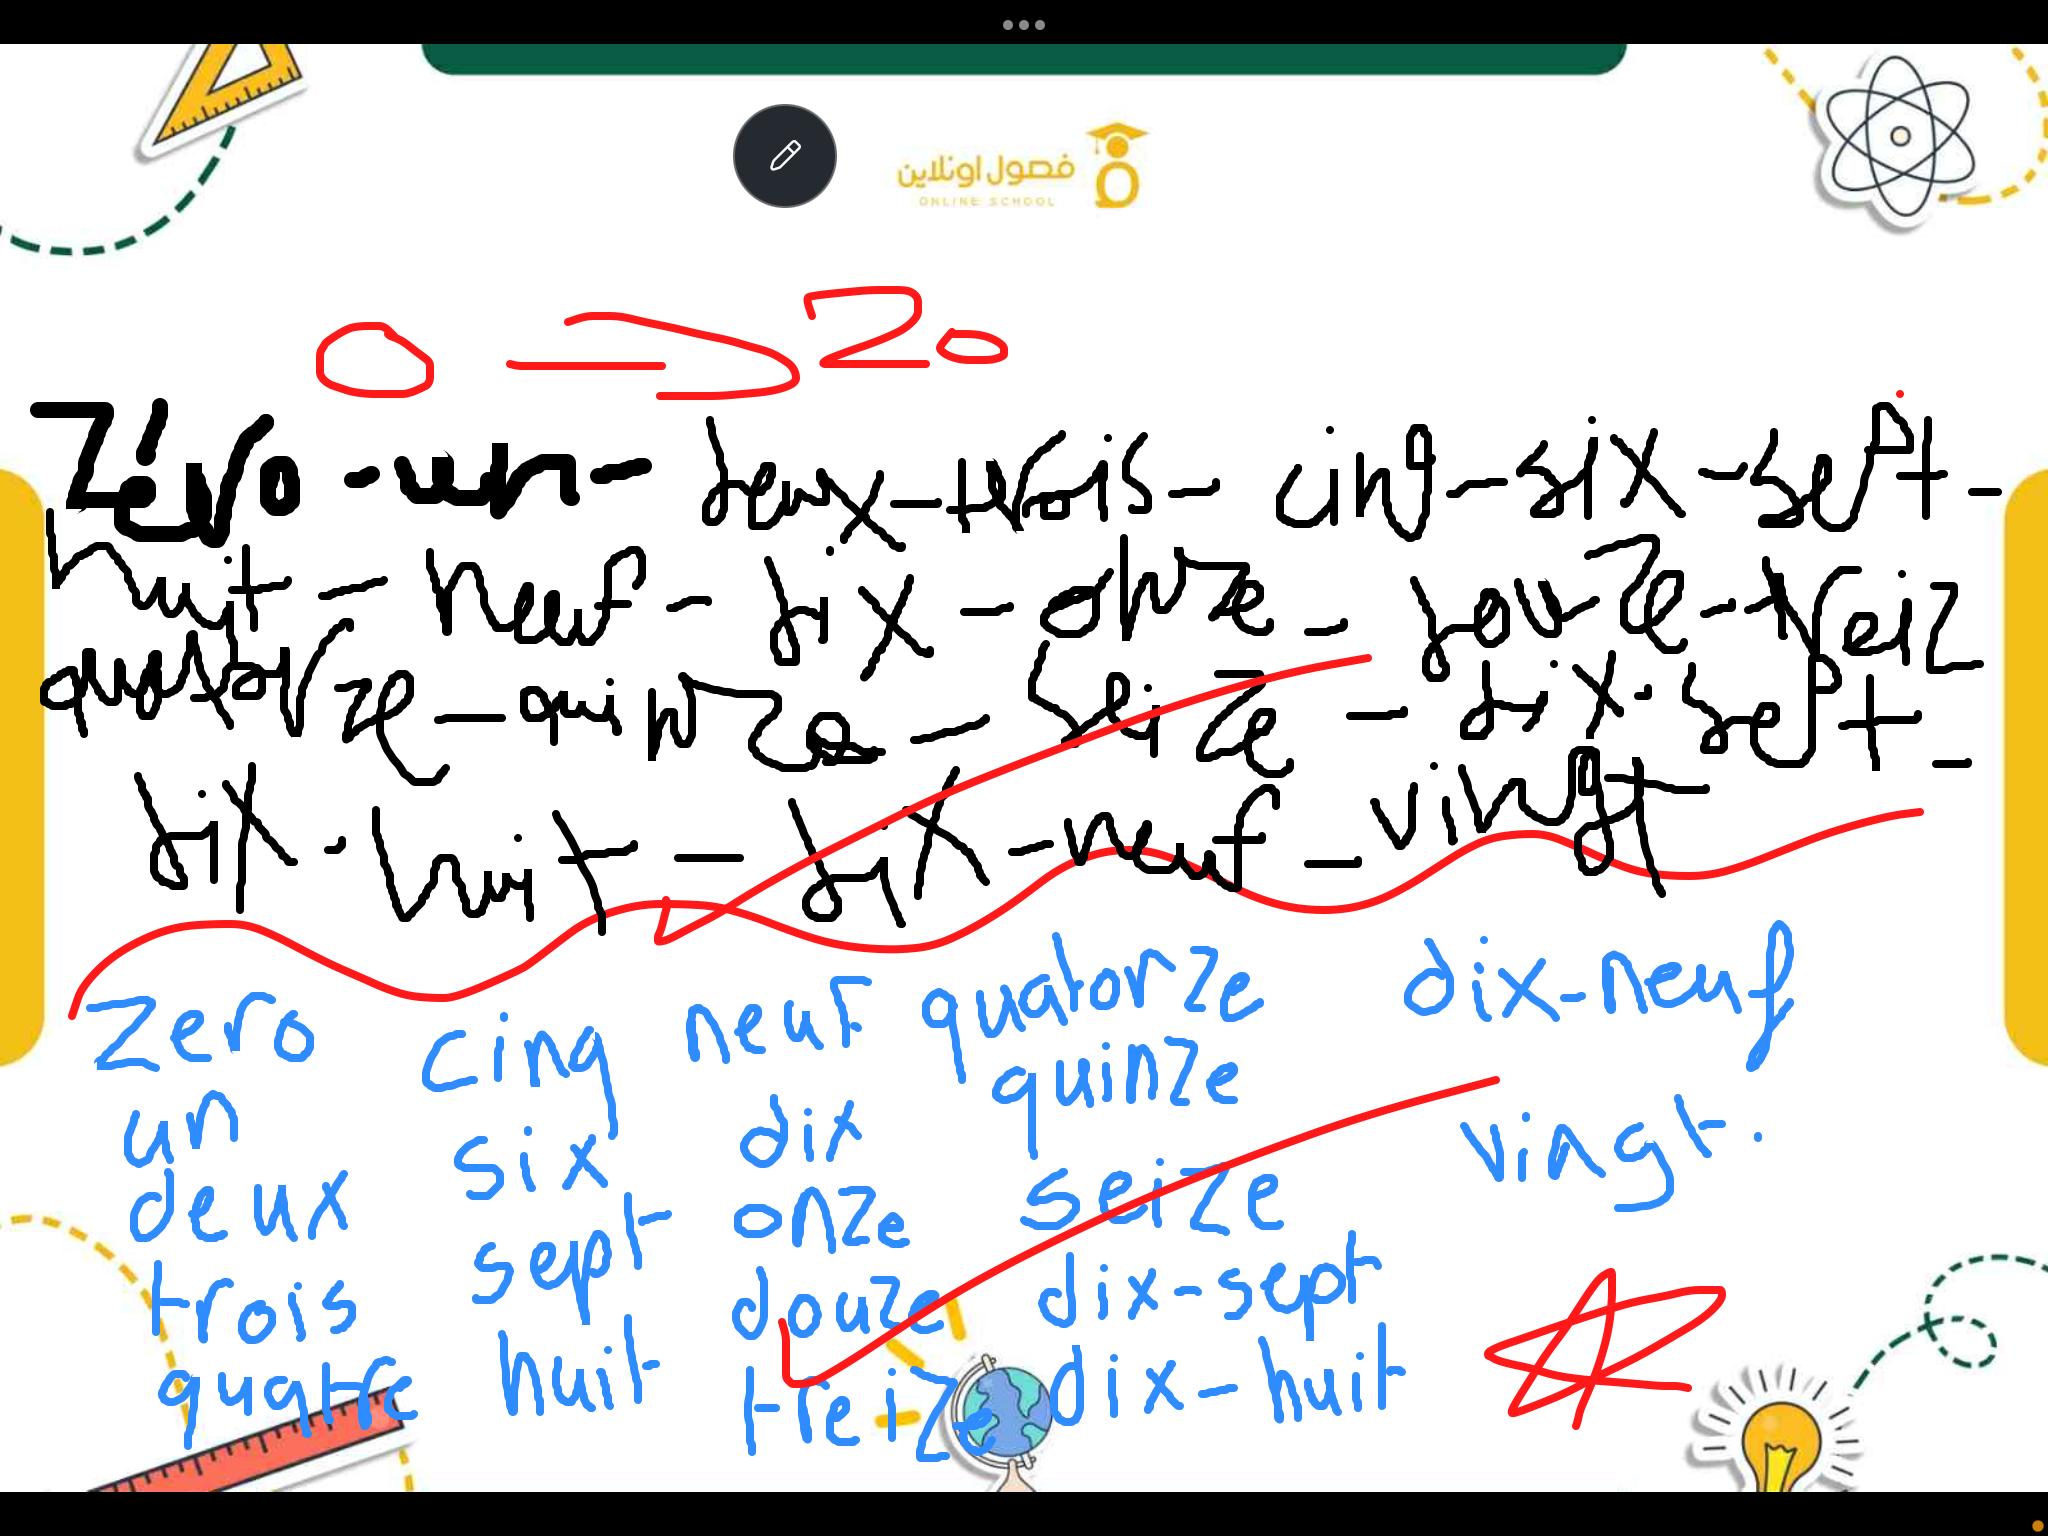 فصول اونلاين
ONLINE SCHOOL
0 → 20
Zéro - un - deux - trois - cinq - six - sept -
huit - neuf - dix - onze - douze - treiz
quatorze - quinze - seize - dix-sept -
dix-huit - dix-neuf - vingt
zero
un
deux
trois
quatre
cinq
six
sept
huit
neuf
dix
onze
douze
treize
quatorze
quinze
seize
dix-sept
dix-huit
dix-neuf
vingt.